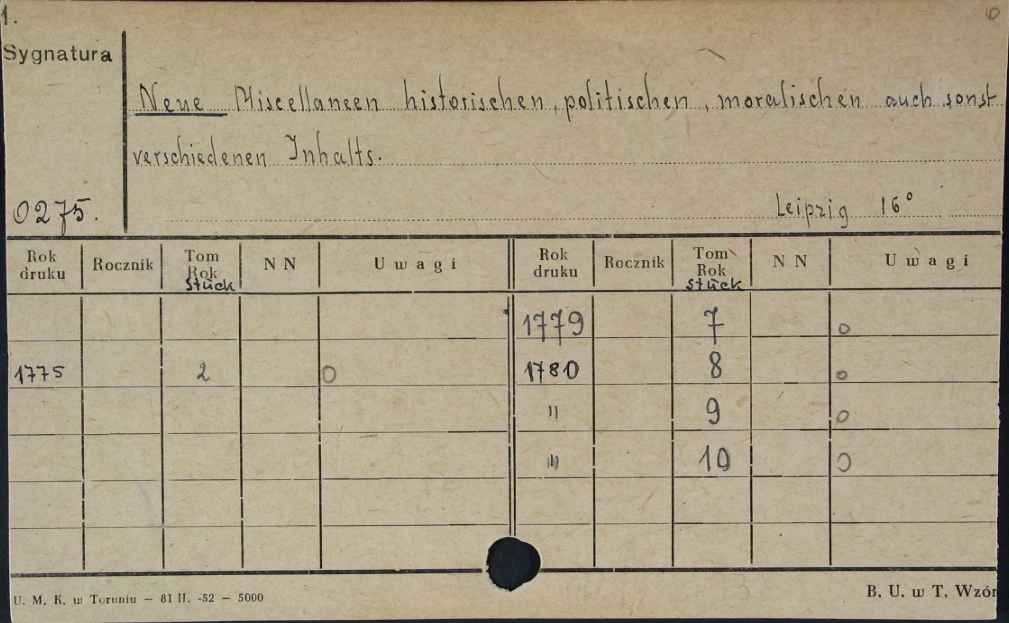 1.
0
Sygnatura
Neue Miscellaneen historischen, politischen, moralischen auch sonst
verschiedenen Inhalts.
0275.
Leipzig 16°
Rok druku Rocznik Tom Rok Stück N N Uwagi Rok druku Rocznik Tom Rok Stück N N Uwagi
1779 7 0
1775 2 0 1780 8 0
" 9 0
" 10 0
U. M. K. w Toruniu — 81 II. -52 — 5000
B. U. w T. Wzór